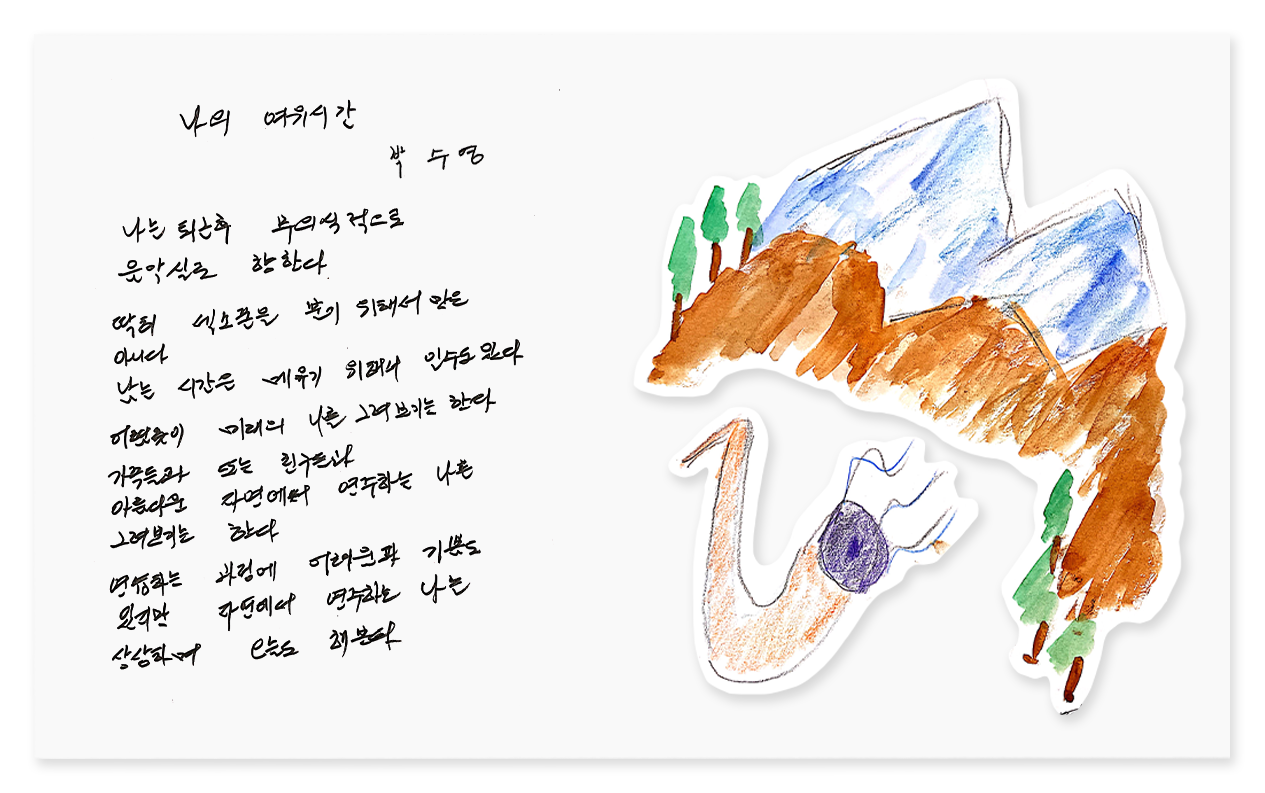 나의 여유시간
박수영
나는 퇴근후 무의식적으로
음악실로 향한다
딱히 섹소폰을 불기 위해서 만은
아니다
남는 시간은 메우기 위해서 인수도 있다
어렴풋이 미래의 나를 그려보기는 한다
가족들과 또는 친구들과
아름다운 자연에서 연주하는 나를
그려보기는 한다
연습하는 과정에 어려운과 기쁨도
있지만 자연에서 연주하는 나는
상상하며 오늘도 해본다